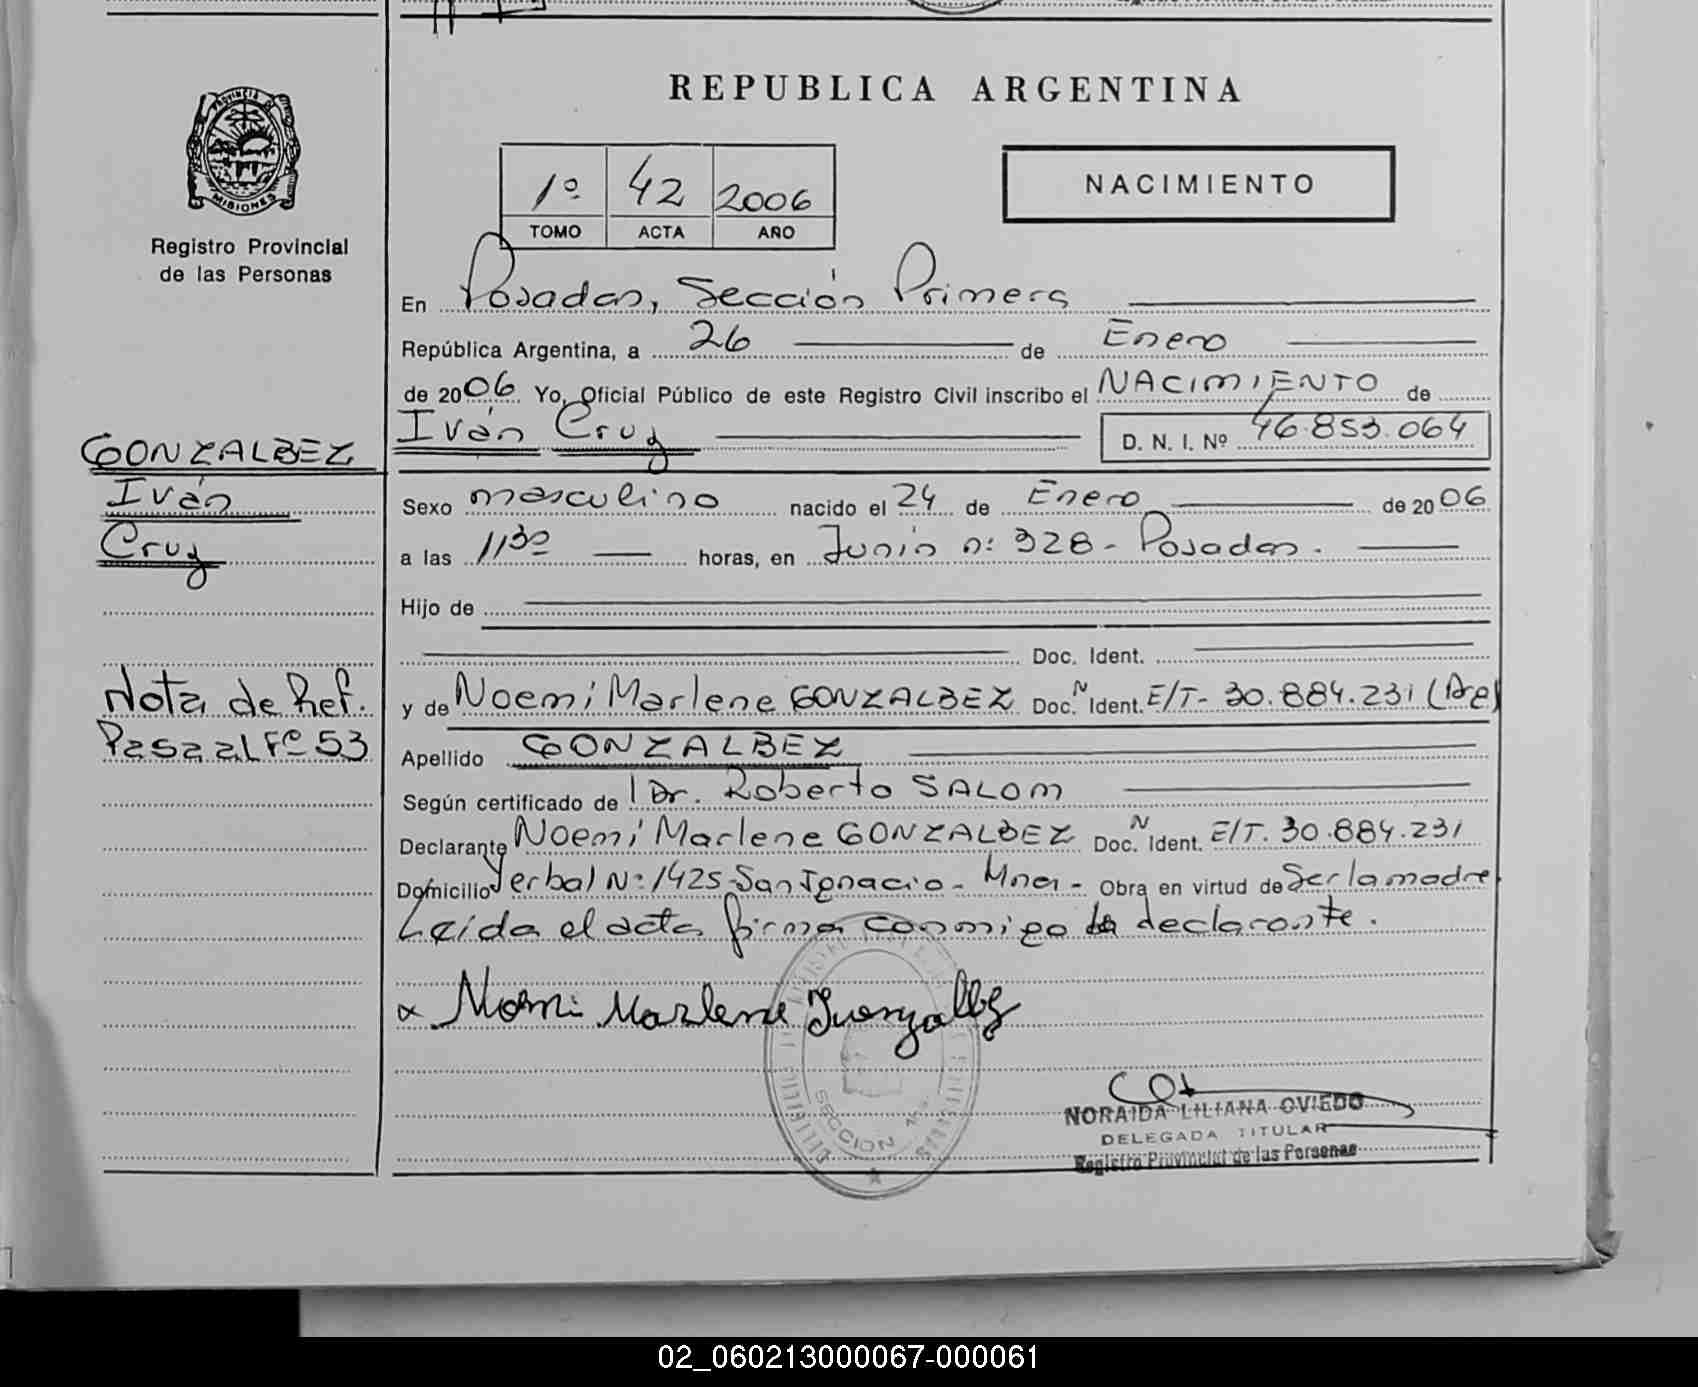 REPUBLICA ARGENTINA
PROVINCIA DE
MISIONES
Registro Provincial
de las Personas
1º 42 2006
TOMO ACTA AÑO
NACIMIENTO
En Posadas, Sección Primera
República Argentina, a 26 de Enero
de 2006 Yo, Oficial Público de este Registro Civil inscribo el NACIMIENTO de
Iván Cruz D. N. I. Nº 46.853.064
GONZALBEZ
Iván
Cruz
Sexo masculino nacido el 24 de Enero de 2006
a las 11³⁰ horas, en Junín nº 328 - Posadas.
Hijo de
Doc. Ident.
Nota de Ref.
Pasa al Fº 53
y de Noemí Marlene GONZALBEZ Doc. N Ident. E/T- 30.884.231 (Arg)
Apellido GONZALBEZ
Según certificado de Dr. Roberto SALOM
Declarante Noemí Marlene GONZALBEZ Doc. N Ident. E/T. 30.884.231
Domicilio Yerbal Nº 1425-San Ignacio - Mnes - Obra en virtud de Ser la madre
Leída el acta firma conmigo la declarante.
x Noemi Marlene Gonzalbez
SECCION 1ra.
NORAIDA LILIANA OVIEDO
DELEGADA TITULAR
Registro Provincial de las Personas
02_060213000067-000061